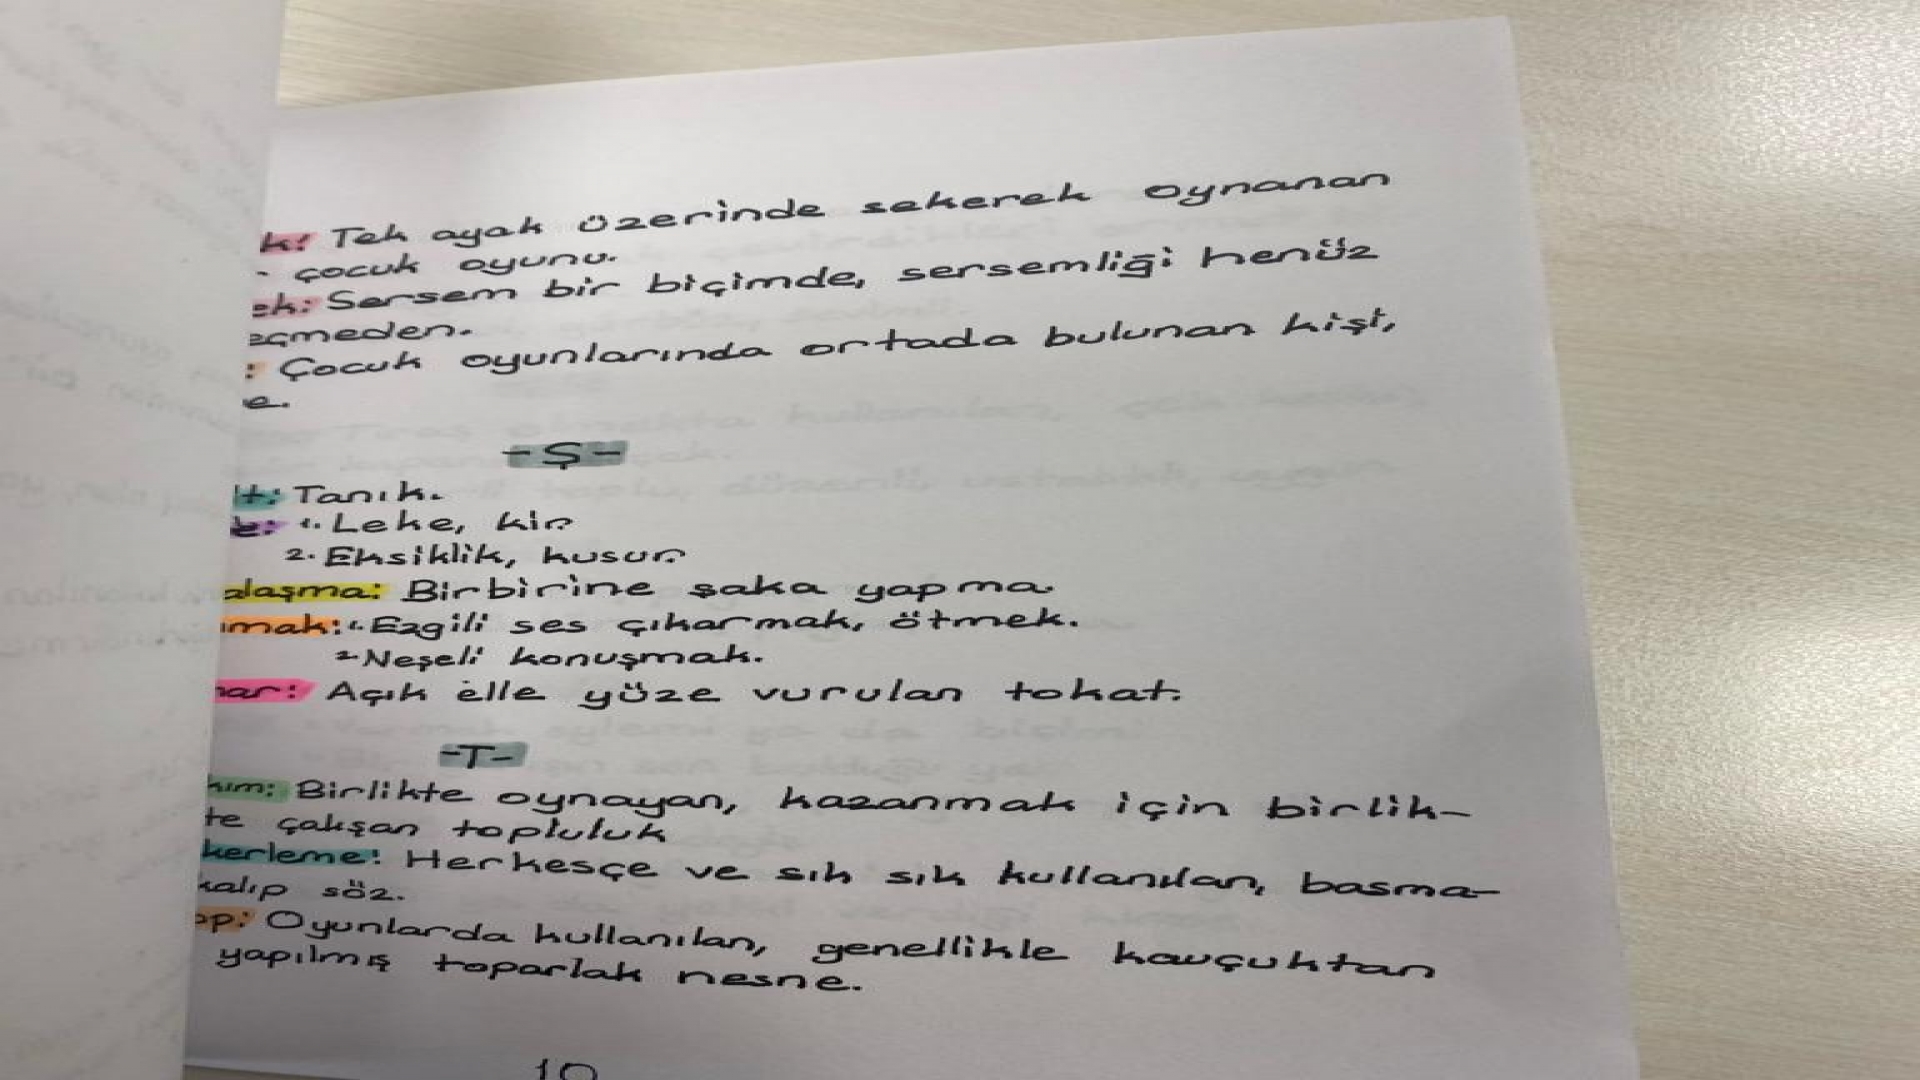 k: Tek ayak üzerinde sekerek oynanan
çocuk oyunu.
ek: Sersem bir biçimde, sersemliği henüz
eçmeden.
: Çocuk oyunlarında ortada bulunan kişi,
e.
-Ş-
it: Tanık.
e: 1. Leke, kir.
2. Eksiklik, kusur.
alaşma: Birbirine şaka yapma.
ımak: 1. Ezgili ses çıkarmak, ötmek.
2. Neşeli konuşmak.
mar: Açık elle yüze vurulan tokat.
-T-
kım: Birlikte oynayan, kazanmak için birlik-
te çalışan topluluk
kerleme: Herkesçe ve sık sık kullanılan, basma-
kalıp söz.
op: Oyunlarda kullanılan, genellikle kauçuktan
yapılmış toparlak nesne.
10